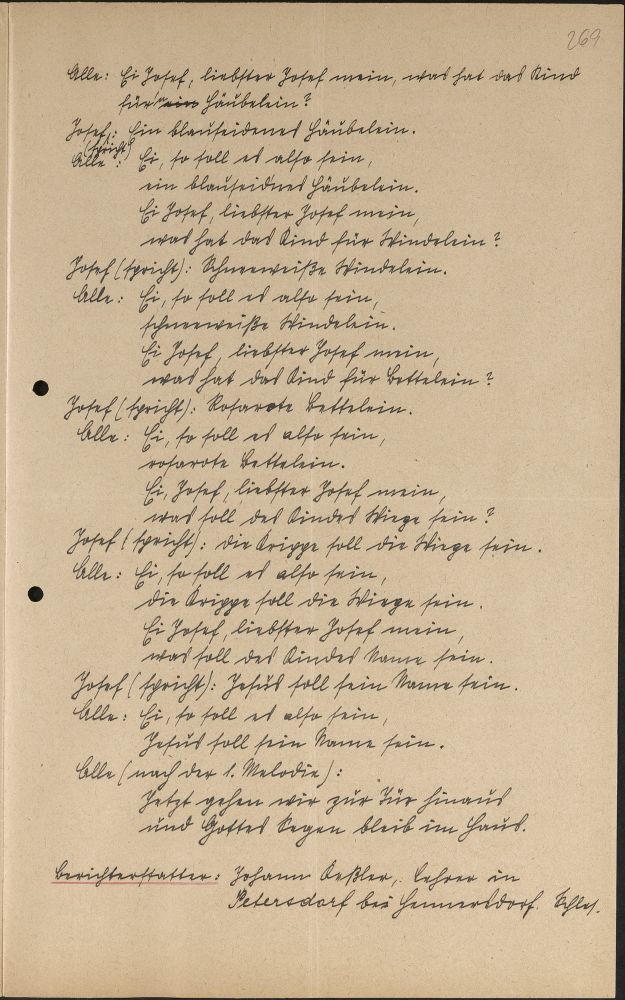 269
Alle: Ei Josef, liebster Josef mein, was hat das Kind
für ein Häubelein?
Josef (spricht): Ein blauseidenes Häubelein.
Alle: Ei, so soll es also sein,
ein blauseid'nes Häubelein.
Ei Josef, liebster Josef mein,
was hat das Kind für Windelein?
Josef (spricht): Schneeweiße Windelein.
Alle: Ei, so soll es also sein,
schneeweiße Windelein.
Ei Josef, liebster Josef mein,
was hat das Kind für Bettelein?
Josef (spricht): Rosarote Bettelein.
Alle: Ei, so soll es also sein,
rosarote Bettelein.
Ei, Josef, liebster Josef mein,
was soll des Kindes Wiege sein?
Josef (spricht): Die Krippe soll die Wiege sein.
Alle: Ei, so soll es also sein,
die Krippe soll die Wiege sein.
Ei Josef, liebster Josef mein,
was soll des Kindes Name sein.
Josef (spricht): Jesus soll sein Name sein.
Alle: Ei, so soll es also sein,
Jesus soll sein Name sein.
Alle (nach der 1. Melodie):
Jetzt gehen wir zur Tür hinaus
und Gottes Segen bleib im Haus.
Berichterstatter: Johann Keßler, Lehrer in
Petersdorf bei Hennersdorf. Schles.